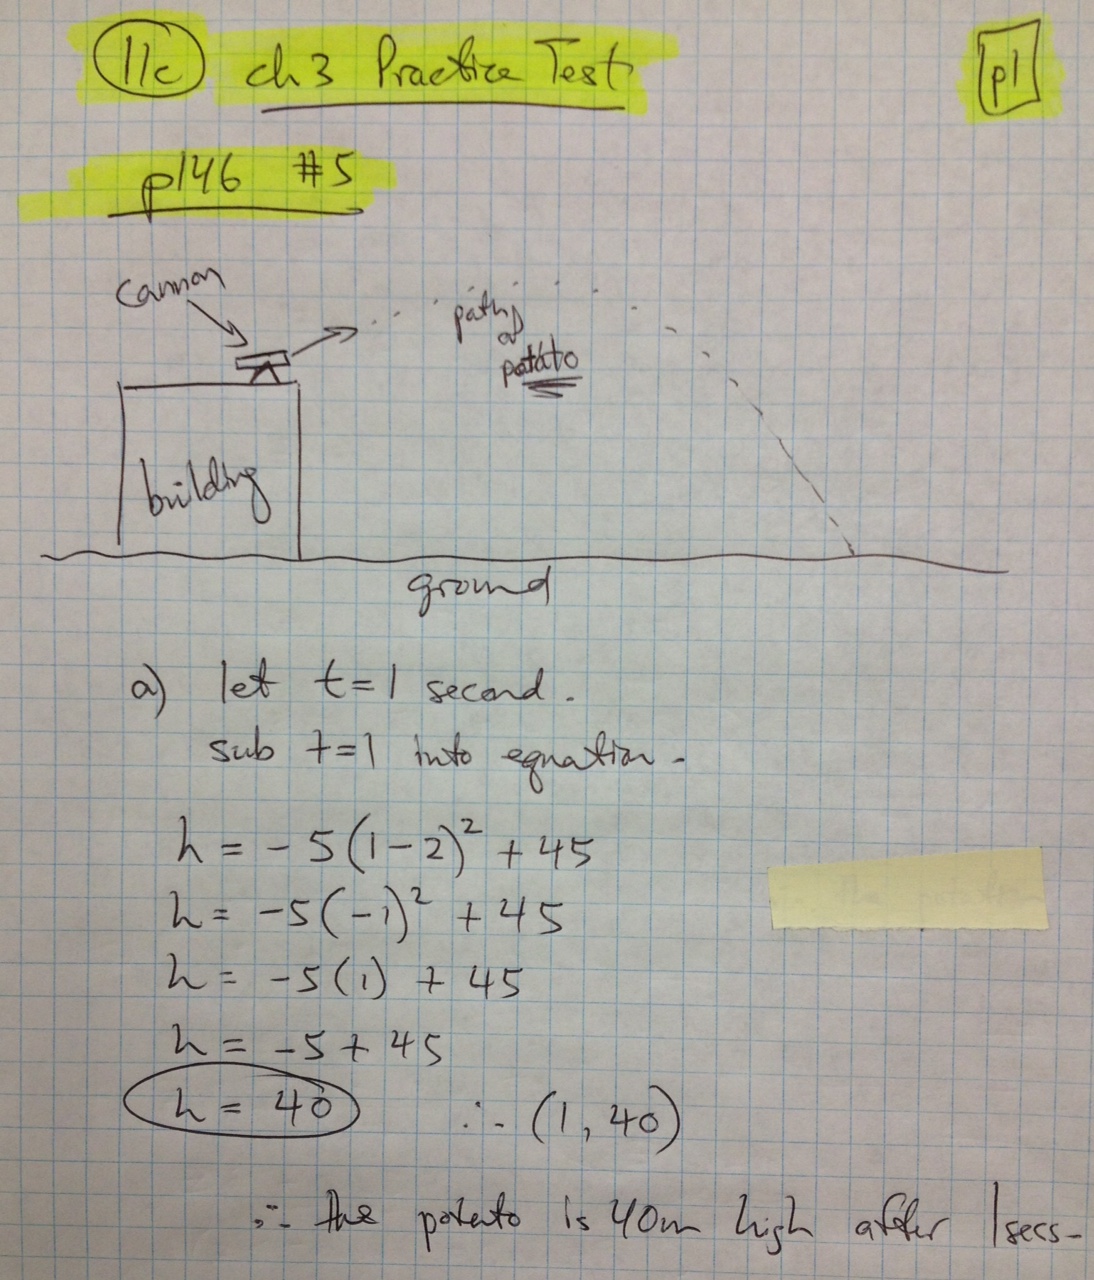 11c ch 3 Practice Test
p1
p146 #5
cannon
path of
potato
building
ground
a) let t=1 second.
sub t=1 into equation.
h = -5(1-2)² + 45
h = -5(-1)² + 45
h = -5(1) + 45
h = -5 + 45
h = 40 ∴ (1, 40)
∴ the potato is 40m high after 1 secs.